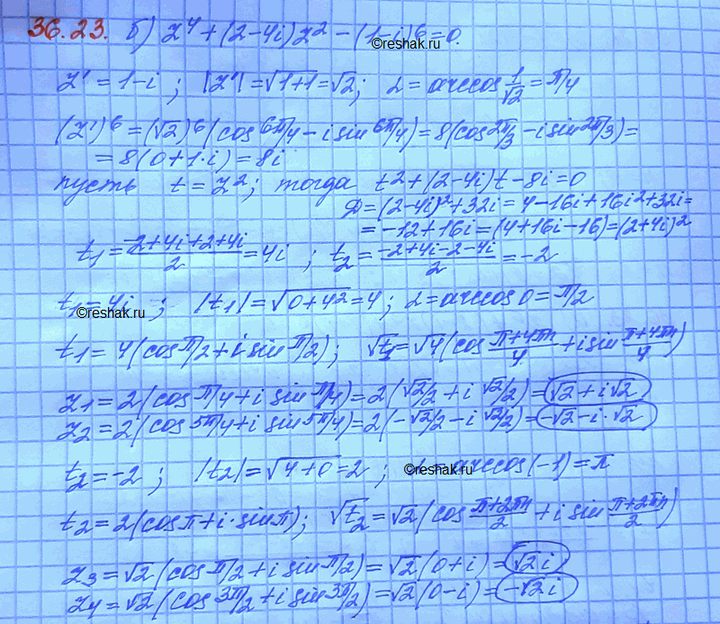 36.23. б) z⁴ + (2-4i)z² - (1-i)⁶ = 0.
©reshak.ru
z' = 1-i ; |z'| = √1+1 = √2; α = arccos 1/√2 = π/4
(z')⁶ = (√2)⁶(cos 6π/4 - i sin 6π/4) = 8(cos 2π/3 - i sin 2π/3) =
= 8(0+1·i) = 8i
пусть t = z²; тогда t² + (2-4i)t - 8i = 0
D = (2-4i)² + 32i = 4-16i+16i²+32i =
= -12+16i = (4+16i-16) = (2+4i)²
t₁ = (-2+4i+2+4i)/2 = 4i ; t₂ = (-2+4i-2-4i)/2 = -2
t₁ = 4i ; |t₁| = √0+4² = 4 ; α = arccos 0 = π/2
©reshak.ru
t₁ = 4(cos π/2 + i sin π/2); √t₁ = √4(cos (π+4πn)/4 + i sin (π+4πn)/4)
z₁ = 2(cos π/4 + i sin π/4) = 2(√2/2 + i √2/2) = √2 + i√2
z₂ = 2(cos 5π/4 + i sin 5π/4) = 2(-√2/2 - i √2/2) = -√2 - i·√2
t₂ = -2 ; |t₂| = √4+0 = 2 ; α = arccos(-1) = π
©reshak.ru
t₂ = 2(cos π + i·sin π); √t₂ = √2(cos (π+2πn)/2 + i sin (π+2πn)/2)
z₃ = √2(cos π/2 + i sin π/2) = √2(0+i) = √2i
z₄ = √2(cos 3π/2 + i sin 3π/2) = √2(0-i) = -√2i